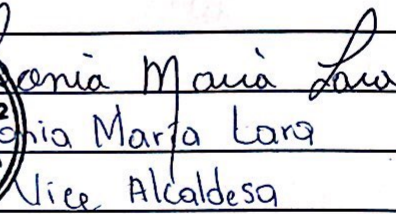 onia Maria Lara
onia Marja Lara
Vice Alcaldesa